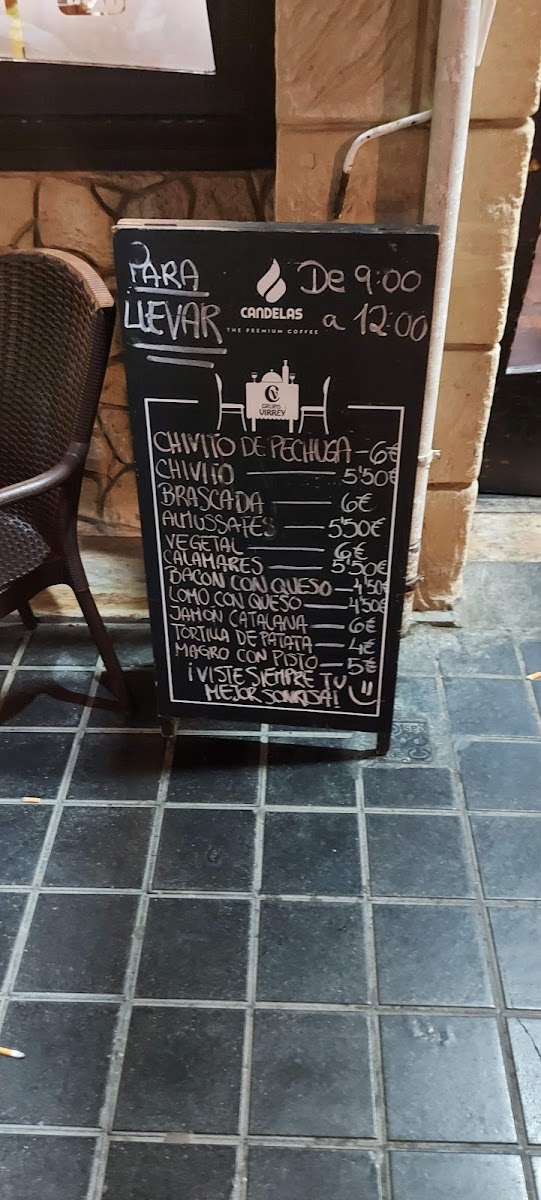 PARA
LLEVAR
CANDELAS
THE PREMIUM COFFEE
De 9:00
a 12:00
GRUPO
VIRREY
CHIVITO DE PECHUGA - 6€
CHIVITO — 5'50€
BRASCADA — 6€
ALMUSSAFES — 5'50€
VEGETAL — 6€
CALAMARES — 5'50€
BACON CON QUESO — 4'50€
LOMO CON QUESO — 4'50€
JAMON CATALANA — 6€
TORTILLA DE PATATA — 4€
MAGRO CON PISTO — 5€
¡VISTE SIEMPRE TU
MEJOR SONRISA!